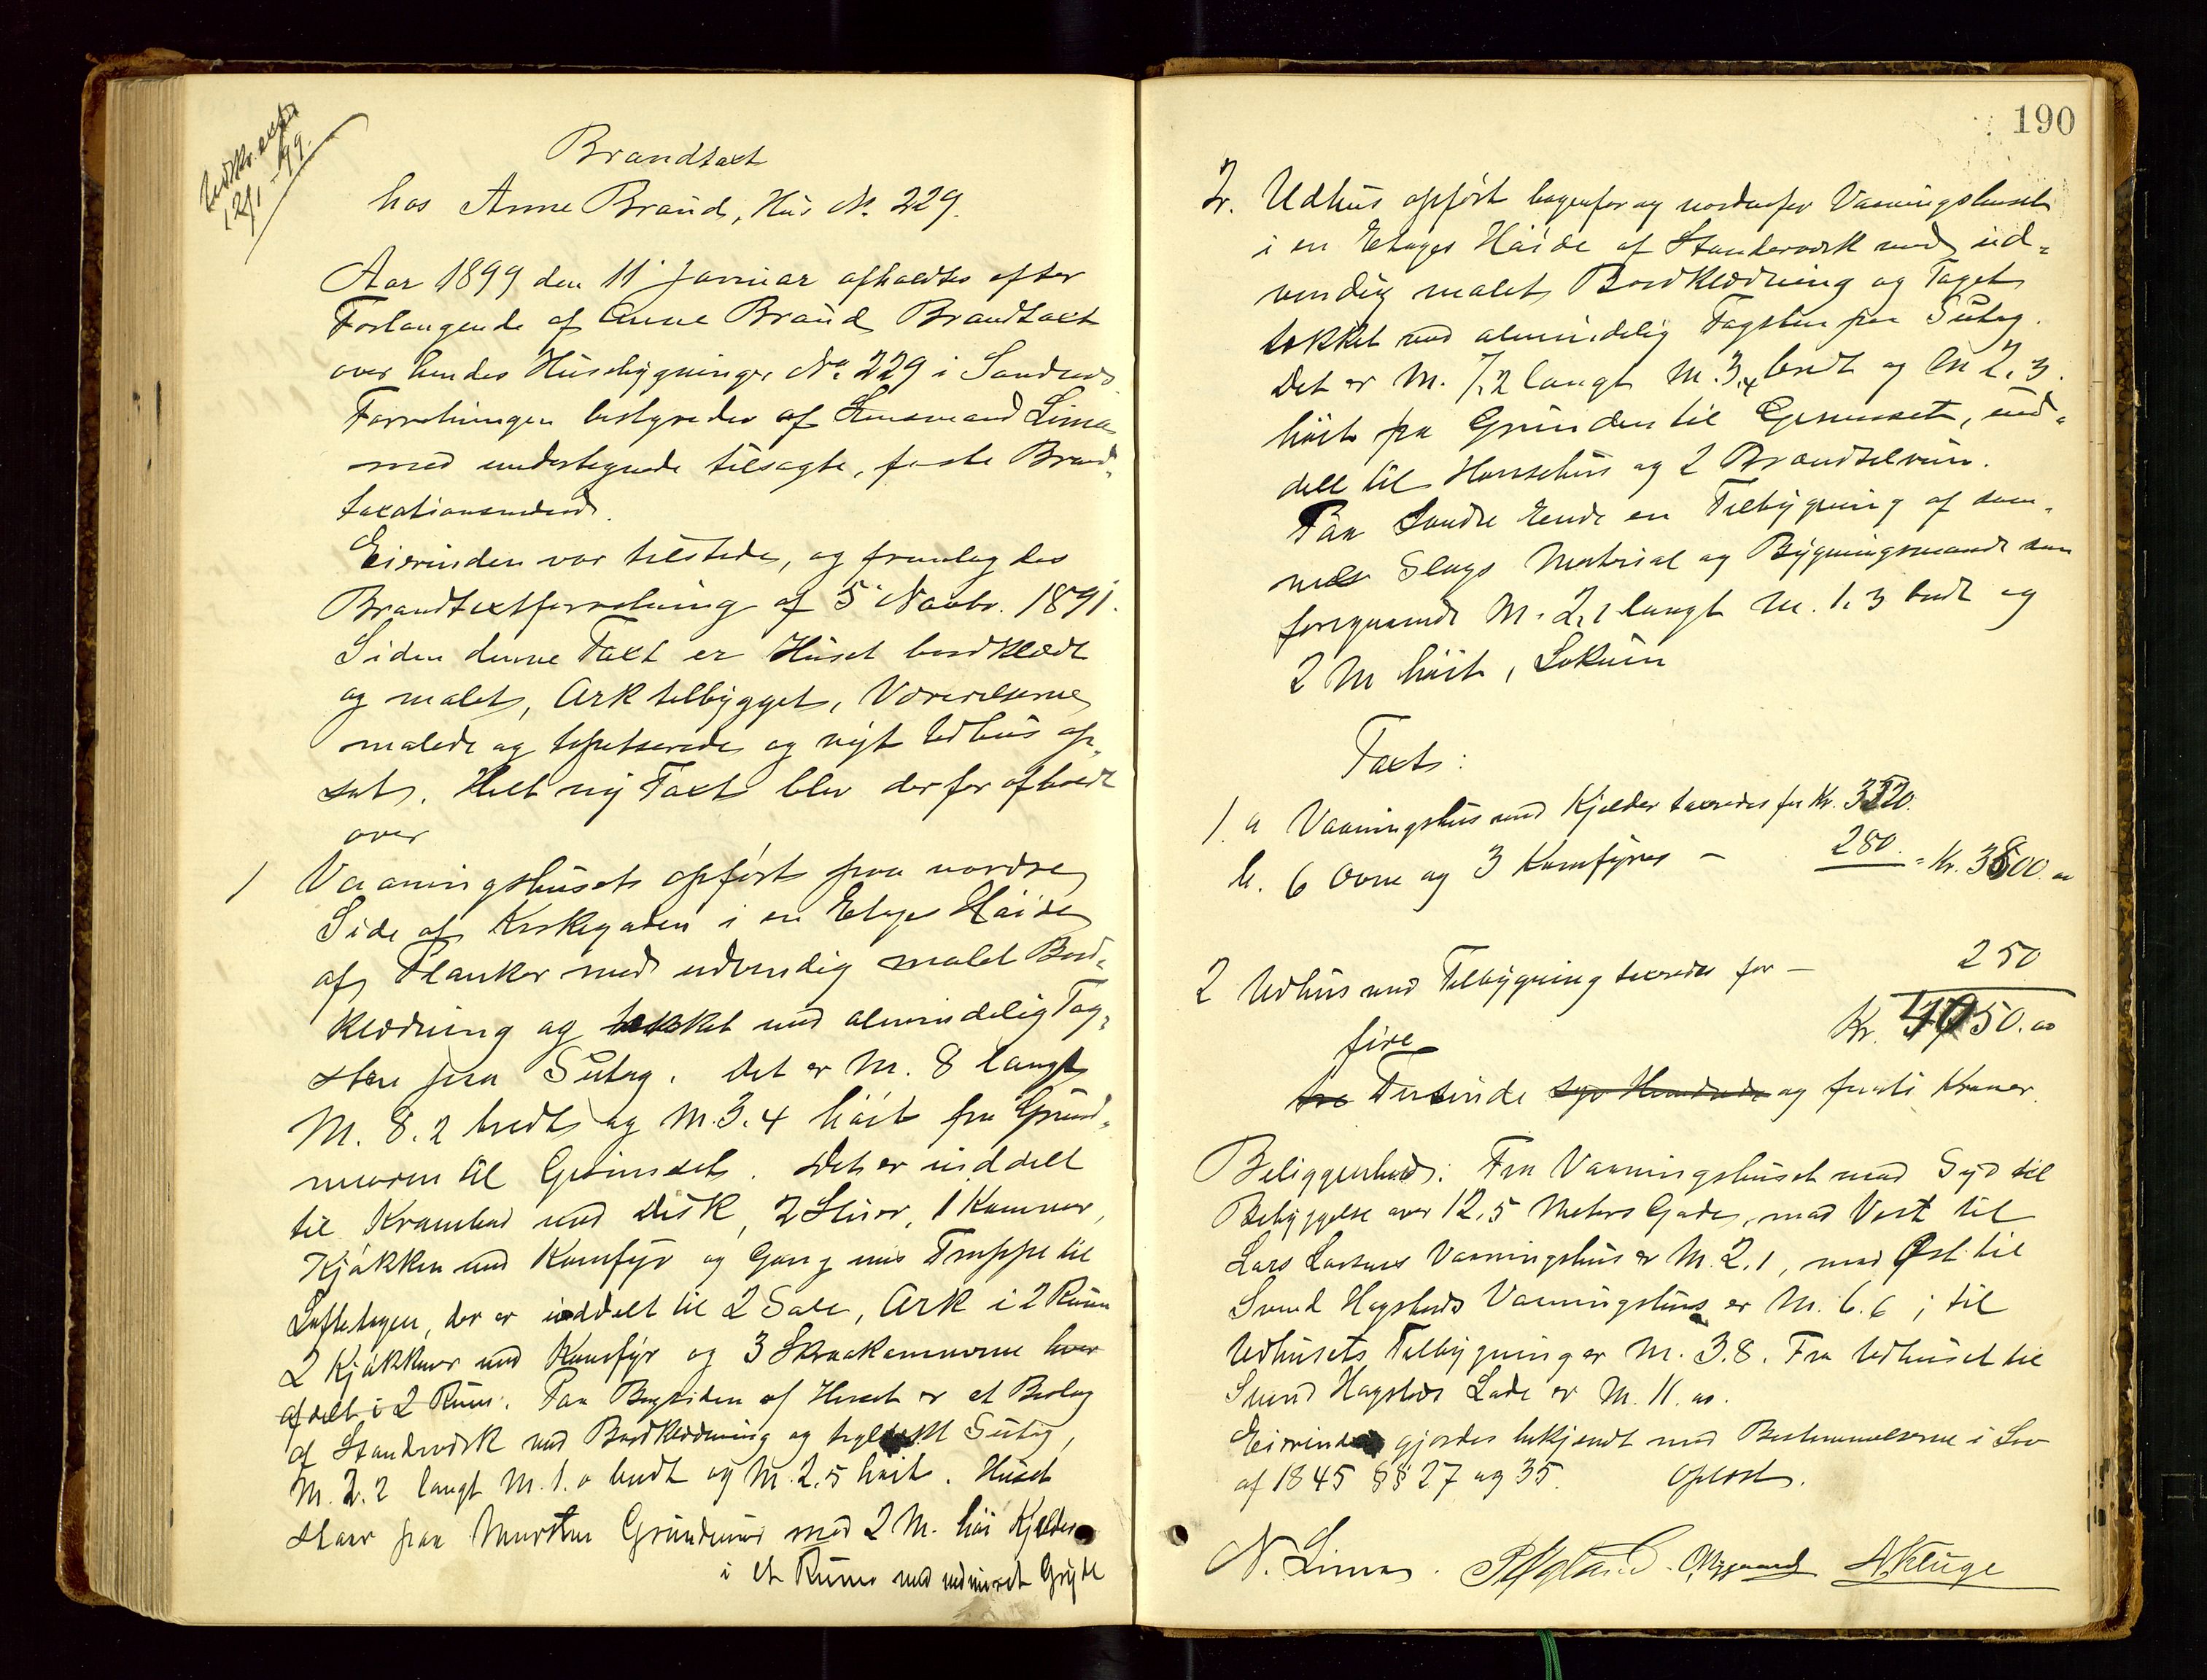 Udskr. exp.
12/1 - 99.
Brandtaxt
hos Anne Braud, Hus No. 229.
Aar 1899 den 11' Januar afholdtes efter
Forlangende af Anne Braud Brandtaxt
over hendes Husebygninger No. 229 i Sandnes
Forretningen bestyredes af Lensmand Lima
med undertegnede tilsagte, faste Brand-
taxationsmænd.
Eierinden var tilstede, og fremlagdes
Brandtaxtforretning af 5' Novbr. 1891.
Siden denne Taxt er Huset bordklædt
og malet, Ark tilbygget, Værelserne
malede og tapetserede og nyt Udhus op-
sat. Helt ny Taxt blev derfor afholdt
over
1 Vaaningshuset opført paa nordre
Side af Kirkegaden i en Etages Høide
af Planker med udvendig malet Bord-
klædning og tækket med almindelig Tag-
sten paa Sutag. Det er M. 8 langt
M. 8.2 bredt og M. 3.4 høit fra Grund-
muren til Gesimset. Det er inddelt
til Krambod med Disk, 2 Stuer, 1 Kammer,
Kjøkken med Komfyr og Gang med Trappe til
Loftetagen, der er inddelt til 2 Sale, Ark i 2 Rum
2 Kjøkkener med Komfyr og 3 Skraakamrerne hver
afdelt i 2 Rum. Paa Bagsiden af Huset er et Bislag
af Standerværk med Bordklædning og Sutag,
M. 2.2 langt M. 1.0 bredt og M. 2.5 høit. Huset
staar paa Mursten Grundmur med 2 M. høi Kjelder
i et Rum med indmuret Gryde
190
2. Udhus opført bagenfor og nordenfor Vaaningshuset
i en Etages Høide af Standerværk med ud-
vendig malet Bordklædning og Taget
tækket med almindelig Tagsten paa Sutag.
Det er M. 7.2 langt M. 3.4 bredt og M 2.3.
høit fra Grunden til Gesimset, ind-
delt til Hønsehus og 2 Brændselrum.
Paa Søndre Ende en Tilbygning af sam-
me Slags Material og Bygningsmaade som
foregaaende M. 2.1 langt M. 1.3 bredt og
2 M høit, Lokum
Taxt:
1. a Vaaningshus med Kjelder taxeredes for Kr. 3520.
b. 6 Ovne og 3 Komfyrer - 280. = Kr. 3800.00
2 Udhus med Tilbygning taxeredes for - 250
Kr. 4050.00
fire
tre Tusinde syv Hundrede og femti Kroner.
Beliggenhed: Fra Vaaningshuset mod Syd til
Bebyggelse over 12.5 Meters Gade, mod Vest til
Lars Larsens Vaaningshus er M. 2.1, mod Øst til
Svend Hagsteds Vaaningshus er M. 6.6; til
Udhusets Tilbygning er M. 3.8. Fra Udhuset til
Svend Hagsteds Lade er M. 11.00.
Eierinden gjordes bekjendt med Bestemmelserne i Lov
af 1845 §§ 27 og 35. Oplæst.
N. Lima. A Kluge